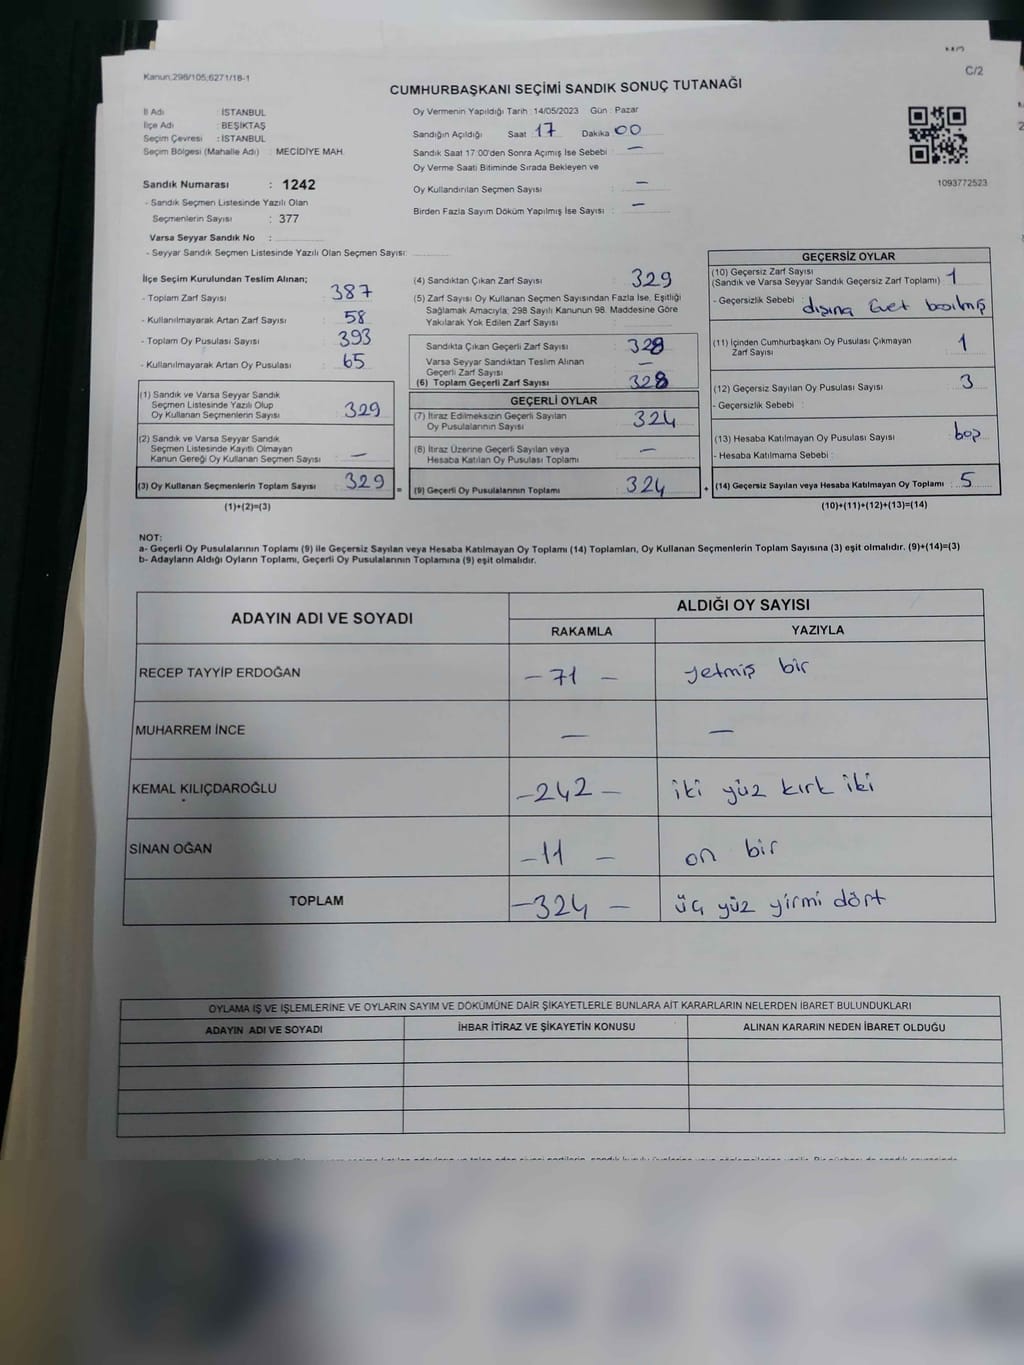 C/2
Kanun;298/105;6271/18-1
CUMHURBAŞKANI SEÇİMİ SANDIK SONUÇ TUTANAĞI
İl Adı : İSTANBUL
İlçe Adı : BEŞİKTAŞ
Seçim Çevresi : İSTANBUL
Seçim Bölgesi (Mahalle Adı) : MECİDİYE MAH.
Sandık Numarası : 1242
- Sandık Seçmen Listesinde Yazılı Olan
Seçmenlerin Sayısı : 377
Varsa Seyyar Sandık No :
- Seyyar Sandık Seçmen Listesinde Yazılı Olan Seçmen Sayısı:
Oy Vermenin Yapıldığı Tarih : 14/05/2023 Gün : Pazar
Sandığın Açıldığı Saat 17 Dakika 00
Sandık Saat 17:00'den Sonra Açımış İse Sebebi : —
Oy Verme Saati Bitiminde Sırada Bekleyen ve
Oy Kullandırılan Seçmen Sayısı : —
Birden Fazla Sayım Döküm Yapılmış İse Sayısı : —
1093772523
İlçe Seçim Kurulundan Teslim Alınan;
- Toplam Zarf Sayısı : 387
- Kullanılmayarak Artan Zarf Sayısı : 58
- Toplam Oy Pusulası Sayısı : 393
- Kullanılmayarak Artan Oy Pusulası : 65
(1) Sandık ve Varsa Seyyar Sandık
Seçmen Listesinde Yazılı Olup
Oy Kullanan Seçmenlerin Sayısı : 329
(2) Sandık ve Varsa Seyyar Sandık
Seçmen Listesinde Kayıtlı Olmayan
Kanun Gereği Oy Kullanan Seçmen Sayısı : —
(3) Oy Kullanan Seçmenlerin Toplam Sayısı : 329 =
(1)+(2)=(3)
(4) Sandıktan Çıkan Zarf Sayısı : 329
(5) Zarf Sayısı Oy Kullanan Seçmen Sayısından Fazla İse, Eşitliği
Sağlamak Amacıyla, 298 Sayılı Kanunun 98. Maddesine Göre
Yakılarak Yok Edilen Zarf Sayısı :
Sandıkta Çıkan Geçerli Zarf Sayısı : 328
Varsa Seyyar Sandıktan Teslim Alınan
Geçerli Zarf Sayısı : —
(6) Toplam Geçerli Zarf Sayısı : 328
GEÇERLİ OYLAR
(7) İtiraz Edilmeksizin Geçerli Sayılan
Oy Pusulalarının Sayısı : 324
(8) İtiraz Üzerine Geçerli Sayılan veya
Hesaba Katılan Oy Pusulası Toplamı : —
(9) Geçerli Oy Pusulalarının Toplamı : 324 +
GEÇERSİZ OYLAR
(10) Geçersiz Zarf Sayısı
(Sandık ve Varsa Seyyar Sandık Geçersiz Zarf Toplamı) : 1
- Geçersizlik Sebebi : dışına Evet basılmış
(11) İçinden Cumhurbaşkanı Oy Pusulası Çıkmayan
Zarf Sayısı : 1
(12) Geçersiz Sayılan Oy Pusulası Sayısı : 3
- Geçersizlik Sebebi :
(13) Hesaba Katılmayan Oy Pusulası Sayısı : boş
- Hesaba Katılmama Sebebi :
(14) Geçersiz Sayılan veya Hesaba Katılmayan Oy Toplamı : 5
(10)+(11)+(12)+(13)=(14)
NOT:
a- Geçerli Oy Pusulalarının Toplamı (9) ile Geçersiz Sayılan veya Hesaba Katılmayan Oy Toplamı (14) Toplamları, Oy Kullanan Seçmenlerin Toplam Sayısına (3) eşit olmalıdır. (9)+(14)=(3)
b- Adayların Aldığı Oyların Toplamı, Geçerli Oy Pusulalarının Toplamına (9) eşit olmalıdır.
ADAYIN ADI VE SOYADI ALDIĞI OY SAYISI
RAKAMLA YAZIYLA
RECEP TAYYİP ERDOĞAN – 71 – yetmiş bir
MUHARREM İNCE — —
KEMAL KILIÇDAROĞLU – 242 – iki yüz kırk iki
SİNAN OĞAN – 11 – on bir
TOPLAM – 324 – üç yüz yirmi dört
OYLAMA İŞ VE İŞLEMLERİNE VE OYLARIN SAYIM VE DÖKÜMÜNE DAİR ŞİKAYETLERLE BUNLARA AİT KARARLARIN NELERDEN İBARET BULUNDUKLARI
ADAYIN ADI VE SOYADI İHBAR İTİRAZ VE ŞİKAYETİN KONUSU ALINAN KARARIN NEDEN İBARET OLDUĞU